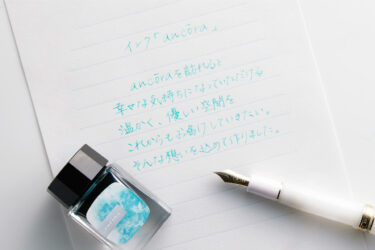 インク「ancora」
ancoraを訪れると
幸せな気持ちになっていただける
温かく、優しい空間を
これからもお届けしていきたい。
そんな想いを込めて作りました。